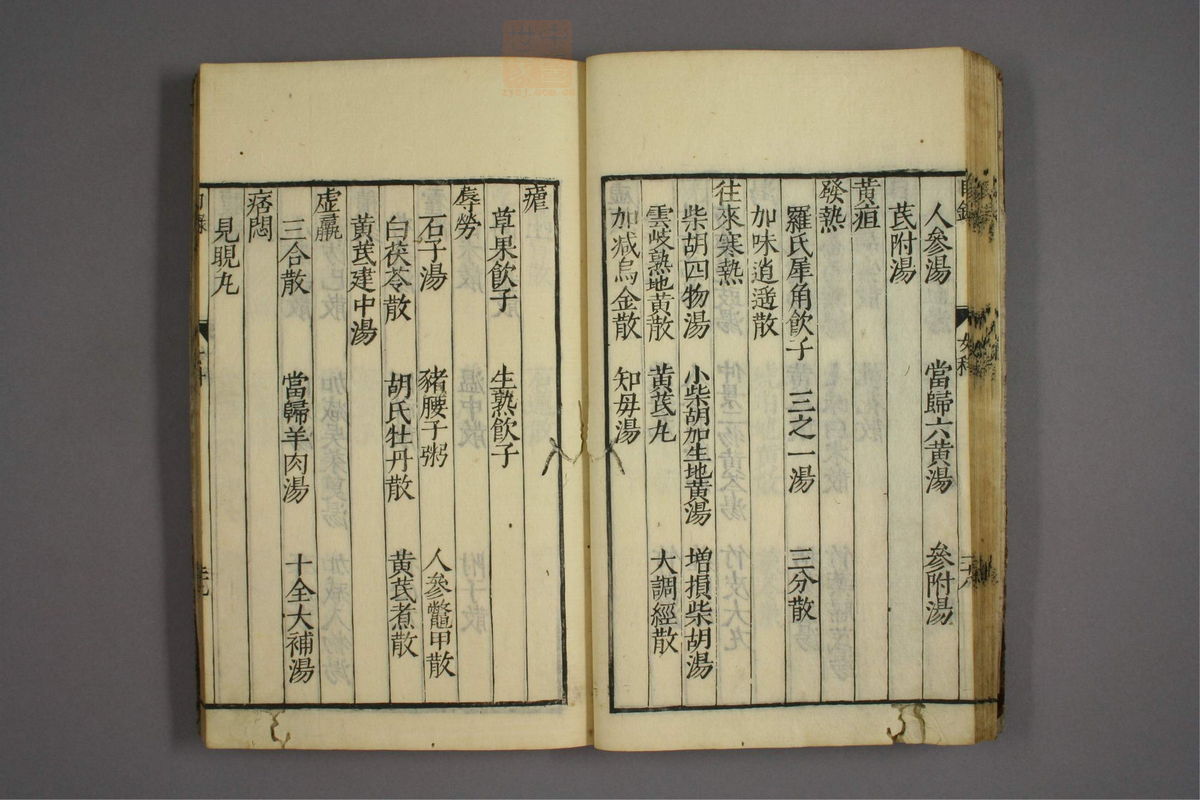 人參湯 當歸六黃湯 參附湯
芪附湯
黃疸
發熱
羅氏犀角飲子 三之一湯 三分散
加味逍遥散
往來寒熱
柴胡四物湯 小柴胡加生地黃湯 增損柴胡湯
雲岐熟地黃散 黃芪丸 大調經散
加减烏金散 知母湯
瘧
草果飲子 生熟飲子
蓐勞
石子湯 豬腰子粥 人參鼈甲散
白茯苓散 胡氏牡丹散 黃芪煮散
黃芪建中湯
虛羸
三合散 當歸羊肉湯 十全大補湯
痞悶
見晛丸